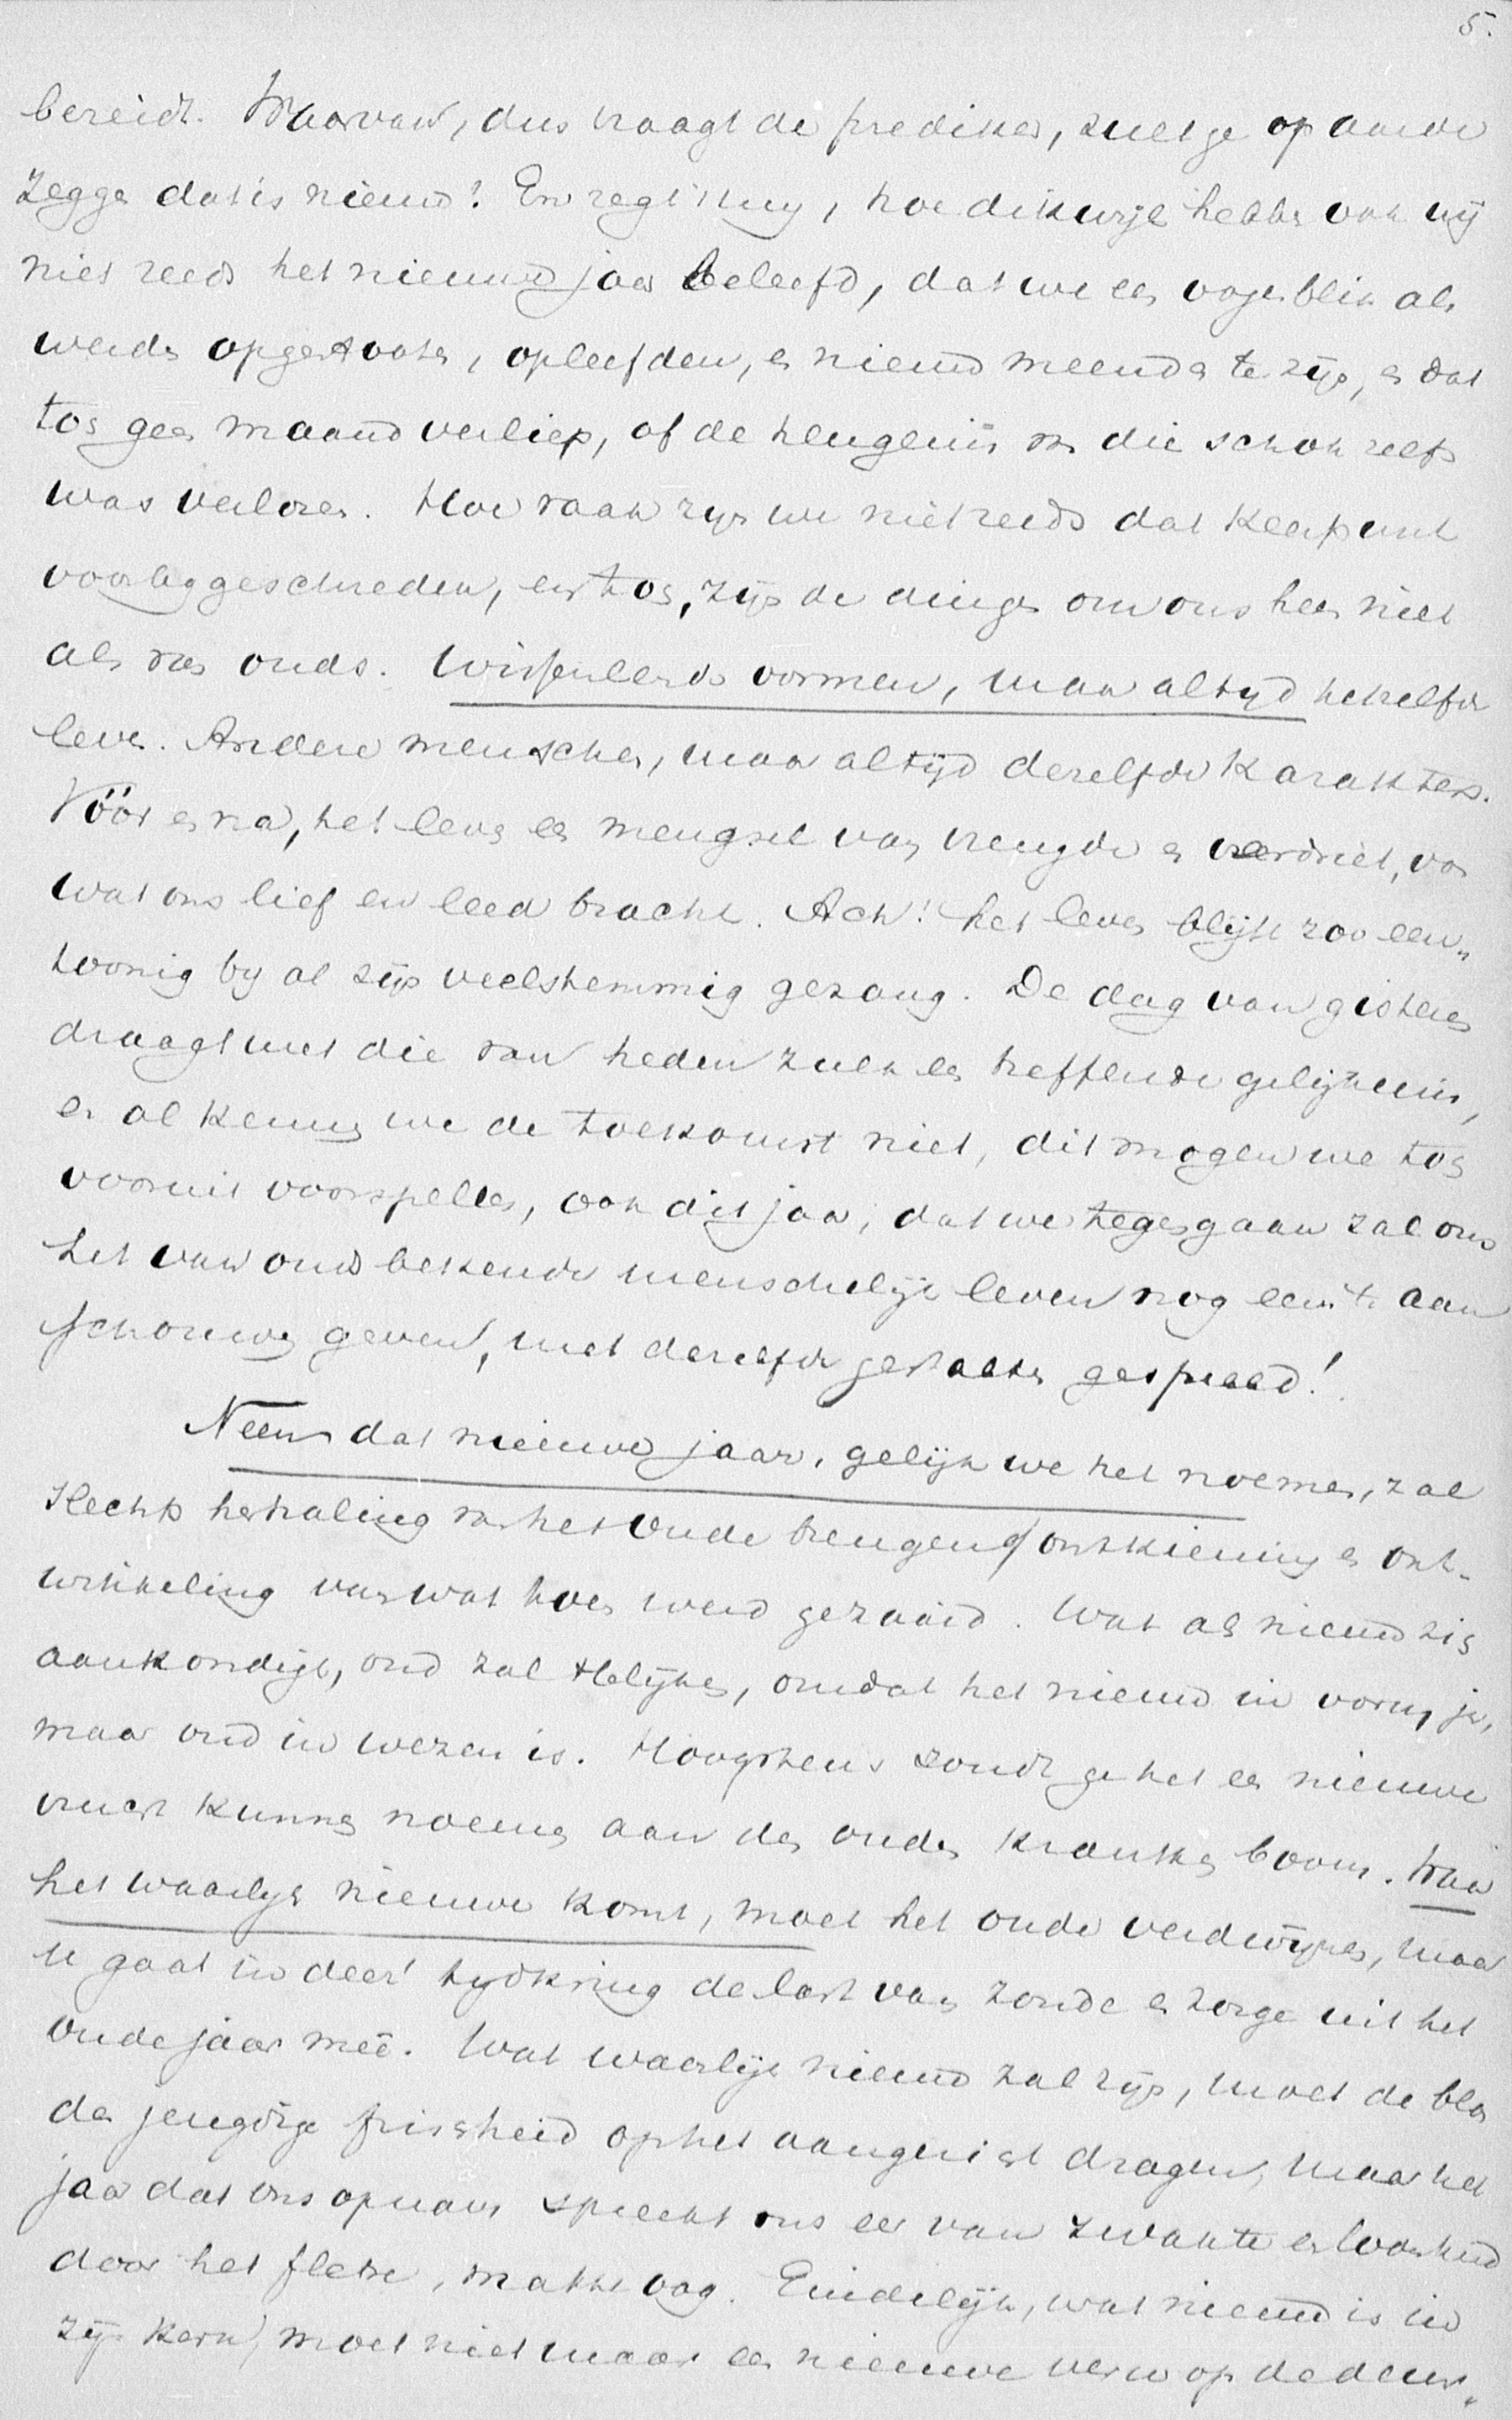 5.
bereidt. Waarvan, dus vraagt de prediker, zult ge op aarde
zeggen dat is nieuw? En zegt 't mij, hoe dikwijls hebben ook wij
niet reeds het nieuwjaar beleefd, dat we een oogenblik als
werden opgestooten, opleefden, en nieuw meenden te zijn, en dat
toch geen maand verliep, of de heugenis van die schok zelfs
was verloren. Hoe vaak zijn we niet reeds dat keerpunt
voorbijgeschreden, en toch, zijn de dingen om ons heen niet
als van ouds. Wisselende vormen, maar altijd hetzelfde
leven. Andere menschen, maar altijd dezelfde karakters.
Vóór en na, het leven een mengsel van vreugde en verdriet, van
wat ons lief en leed bracht. Ach! het leven blijft zoo een„
toonig bij al zijn veelstemmig gezang. De dag van gisteren
draagt met die van heden zulk een treffende gelijkenis,
en al kennen we de toekomst niet, dit mogen we toch
vooruit voorspellen, ook dit jaar, dat we tegengaan zal ons
het van ouds bekende menschelijk leven nog eens te aan
schouwen geven, met dezelfde gestalten gespeeld!
Neen dat nieuwe jaar, gelijk we het noemen, zal
slechts herhaling van het oude brengen of ontkieming en ont-
wikkeling van wat toen werd gezaaid. Wat als nieuw zich
aankondigt, oud zal blijken, omdat het nieuw in vorm, ja,
maar oud in wezen is. Hoogstens zoudt ge het een nieuwe
vrucht kunnen noemen aan den ouden kranken boom. Waar
het waarlijk nieuwe komt, moet het oude verdwijnen, maar
u gaat in deez' tijdkring de last van zonde en zorge uit het
oude jaar meê. Wat waarlijk nieuw zal zijn, moet de blos
der jeugdige frisheid op het aangezicht dragen, maar het
jaar dat ons opnam spreekt ons eer van zwakte en loomheid
door het fletse, matte oog. Eindelijk, wat nieuw is in
zijn kern, moet niet maar een nieuwe verw op de deur„